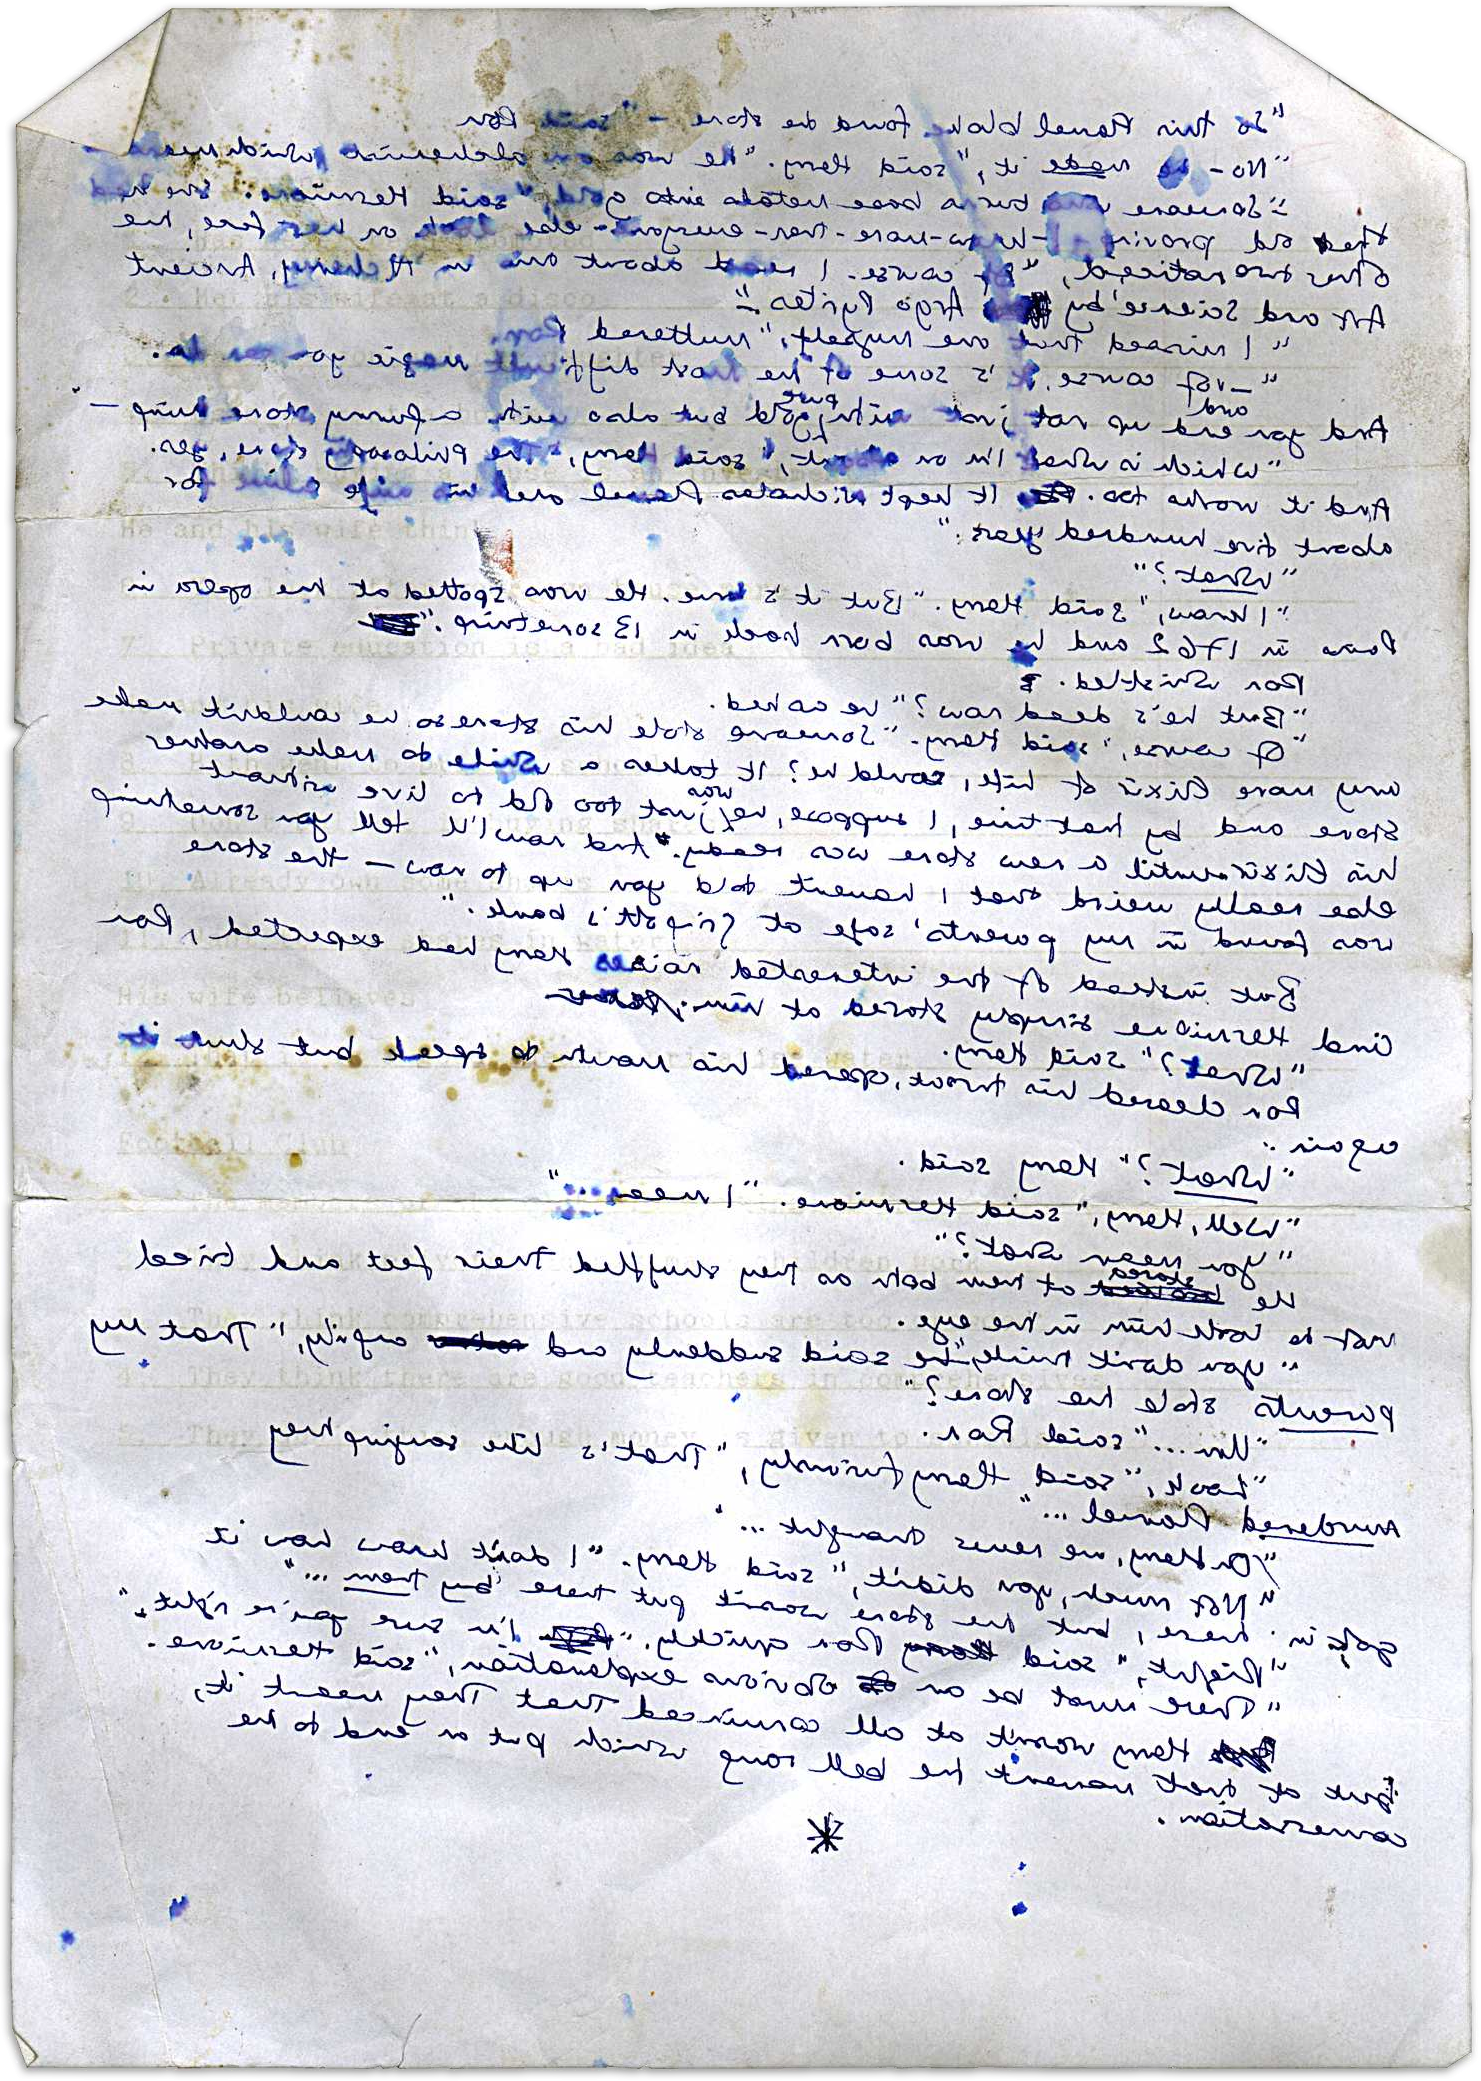 "So this Flamel bloke found the stone —" said Ron
"No - he made it," said Harry. "He was an alchemist which means —
"— Someone who turns base metals into gold," said Hermione. She had
that old proving I-know-more-than-everyone-else look on her face, the
other two noticed, "Of course. I read about one in 'Alchemy, Ancient
Art and Science', by Argo Pyrites —"
"I missed that one myself," muttered Ron.
"—of course, it's some of the most difficult magic you can do.
And you end up not just with pure gold but also with a funny stone thing —"
and
"which is what I'm on about," said Harry, "The Philosophy Stone, yes.
And it works too. It kept Nicholas Flamel and his wife alive for
about five hundred years."
"What?"
"I know," said Harry. "But it's true. He was spotted at the opera in
Paris in 1762 and he was born back in 13 something."
Ron whistled.
"But he's dead now?" he asked.
"Of course," said Harry. "Someone stole his stone so he couldn't make
any more Elixir of Life, could he? It takes a while to make another
stone and by that time, I suppose, he was just too old to live without
his Elixir until a new stone was ready. And now I'll tell you something
else really weird that I haven't told you up to now — the stone
was found in my parents' safe at Gringott's bank."
But instead of the interested noises Harry had expected, Ron
and Hermione simply stared at him.
"What?" said Harry.
Ron cleared his throat, opened his mouth to speak but shut it
again.
"What?" Harry said.
"Well, Harry," said Hermione. "I mean ..."
"You mean what?"
He stared at them both as they shuffled their feet and tried
not to look him in the eye.
"You don't think," he said suddenly and angrily, "That my
parents stole the stone?"
"Um ..." said Ron.
"Look," said Harry furiously, "That's like saying they
murdered Flamel ..."
"Oh Harry, we never thought ..."
"Not much, you didn't," said Harry. "I don't know how it
got in there, but the stone wasn't put there by them ..."
"Right," said Ron quickly. "I'm sure you're right."
"There must be an obvious explanation," said Hermione.
Harry wasn't at all convinced that they meant it,
but at that moment the bell rang which put an end to the
conversation.